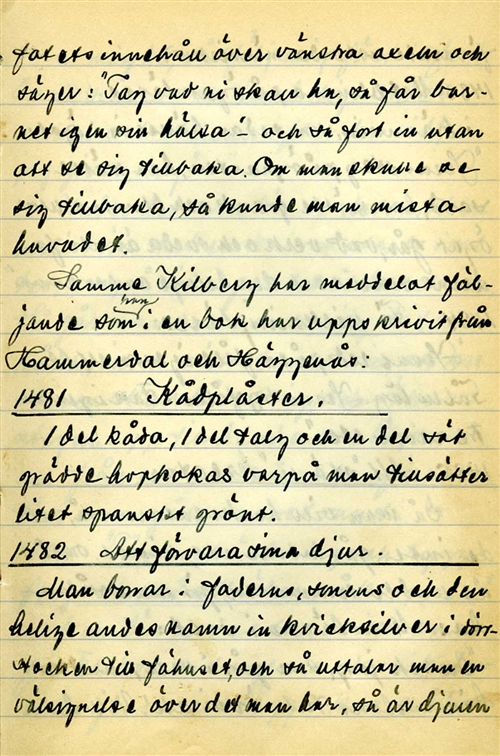 fatets innehåll över vänstra axeln och
säger: "Tag vad ni skall ha, så får bar-
net igen sin hälsa" – och så fort in utan
att se sig tillbaka. Om man skulle se
sig tillbaka, så kunde man mista
huvudet.
Samme Kilberg har meddelat föl-
jande som han i en bok har uppskrivit från
Hammerdal och Häggenås:
1481 Kådplåster.
1 del kåda, 1 del talg och en del söt
grädde hopkokas varpå man tillsätter
litet spanskt grönt.
1482 Att förvara sina djur.
Man borrar i faderns, sonens och den
helige andes namn in kvicksilver i dörr-
stocken till fähuset, och så uttalar man en
välsignelse över det man har, så är djuren